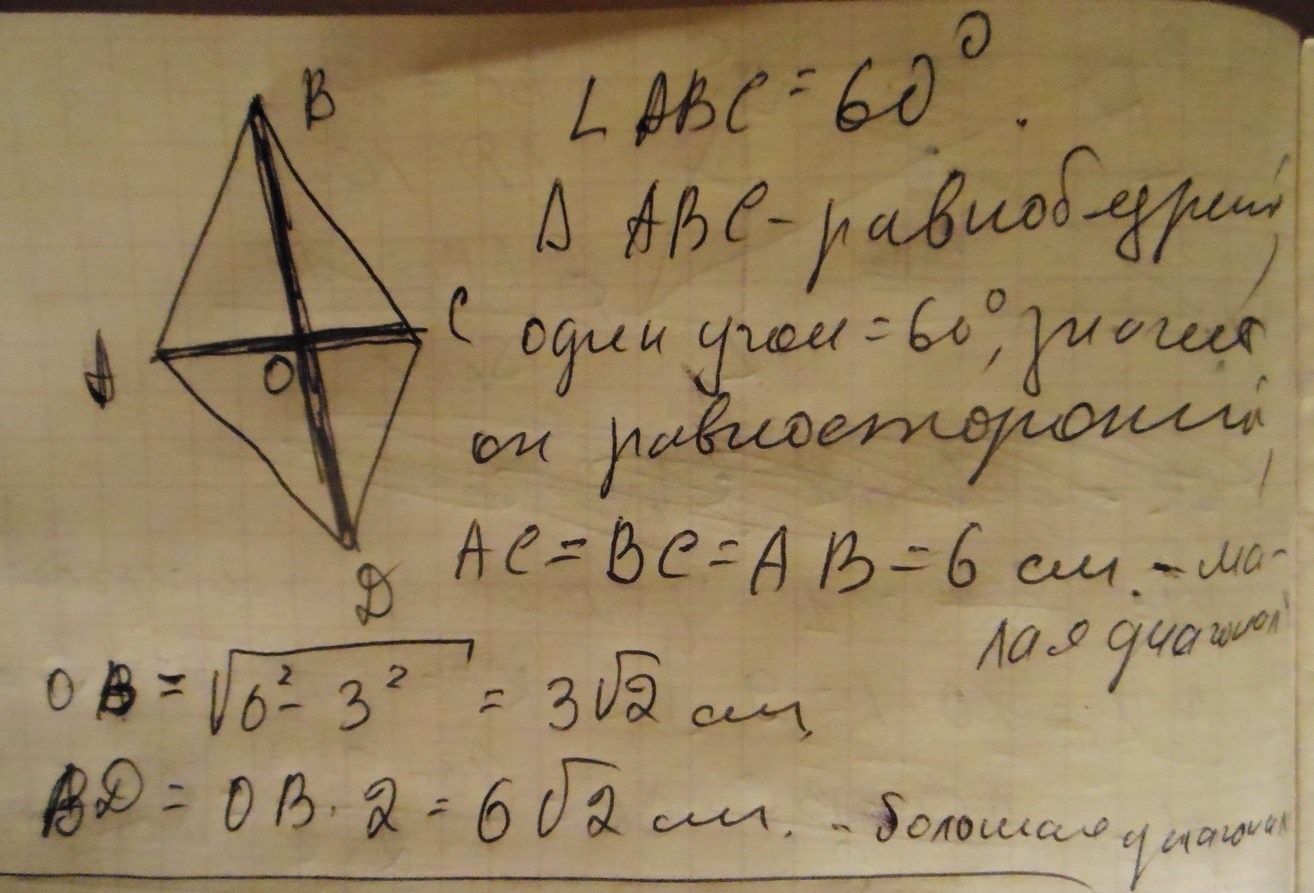 B
∠ABC = 60°.
Δ ABC - равнобедрен,
C
один угол = 60°, значит
A
O
он равносторонний,
AC = BC = AB = 6 см. - ма-
лая диагональ
D
OB = √6² - 3² = 3√2 см,
BD = OB · 2 = 6√2 см. - большая диагональ